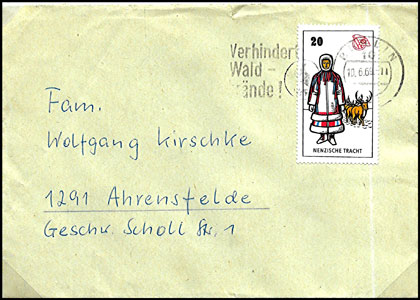 Verhindert
Wald -
brände!
20
BERLIN
10
10.6.69.-11
NENZISCHE TRACHT
Fam.
Wolfgang Kirschke
1291 Ahrensfelde
Geschw. Scholl Str. 1